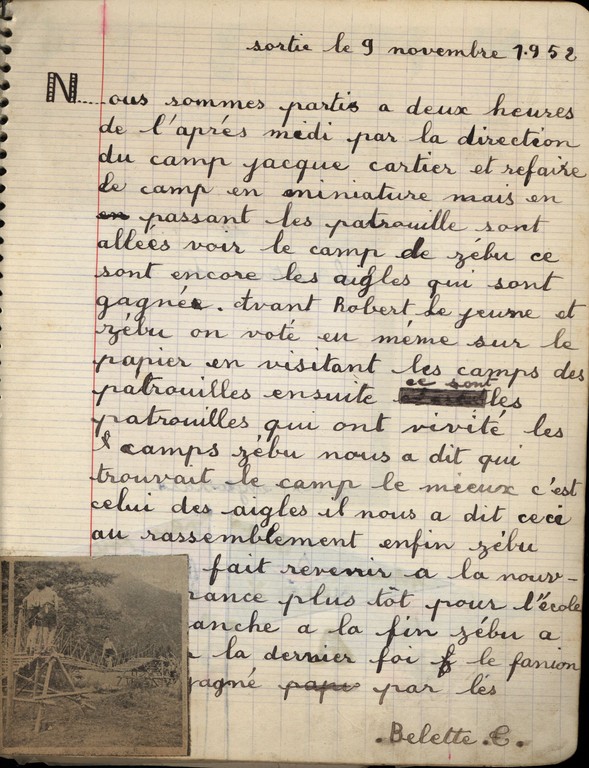 sortie le 9 novembre 1952
Nous sommes partis a deux heures
de l'aprés midi par la direction
du camp jacque cartier et refaire
le camp en miniature mais en
en passant les patrouille sont
alleés voir le camp de zébu ce
sont encore les aigles qui sont
gagnée. Avant Robert le jeune et
zébu on voté eu méme sur le
papier en visitant les camps des
patrouilles ensuite ce sont les
patrouilles qui ont vivité les
camps zébu nous a dit qui
trouvait le camp le mieux c'est
celui des aigles il nous a dit ceci
au rassemblement enfin zébu
fait revenir a la nouv-
rance plus tôt pour l'école
anche a la fin zébu a
la dernier foi le fanion
gagné papi par lés
.Belette.C.